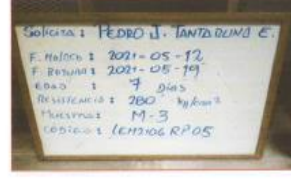 Solicita : PEDRO J. TANTARUNA E.
F. MOLDEO : 2021-05-12
F. ROTURA : 2021-05-19
EDAD : 7 Dias
RESISTENCIA : 280 kg/cm²
MUESTRA : M-3
CODIGO : LEM2106 RP05